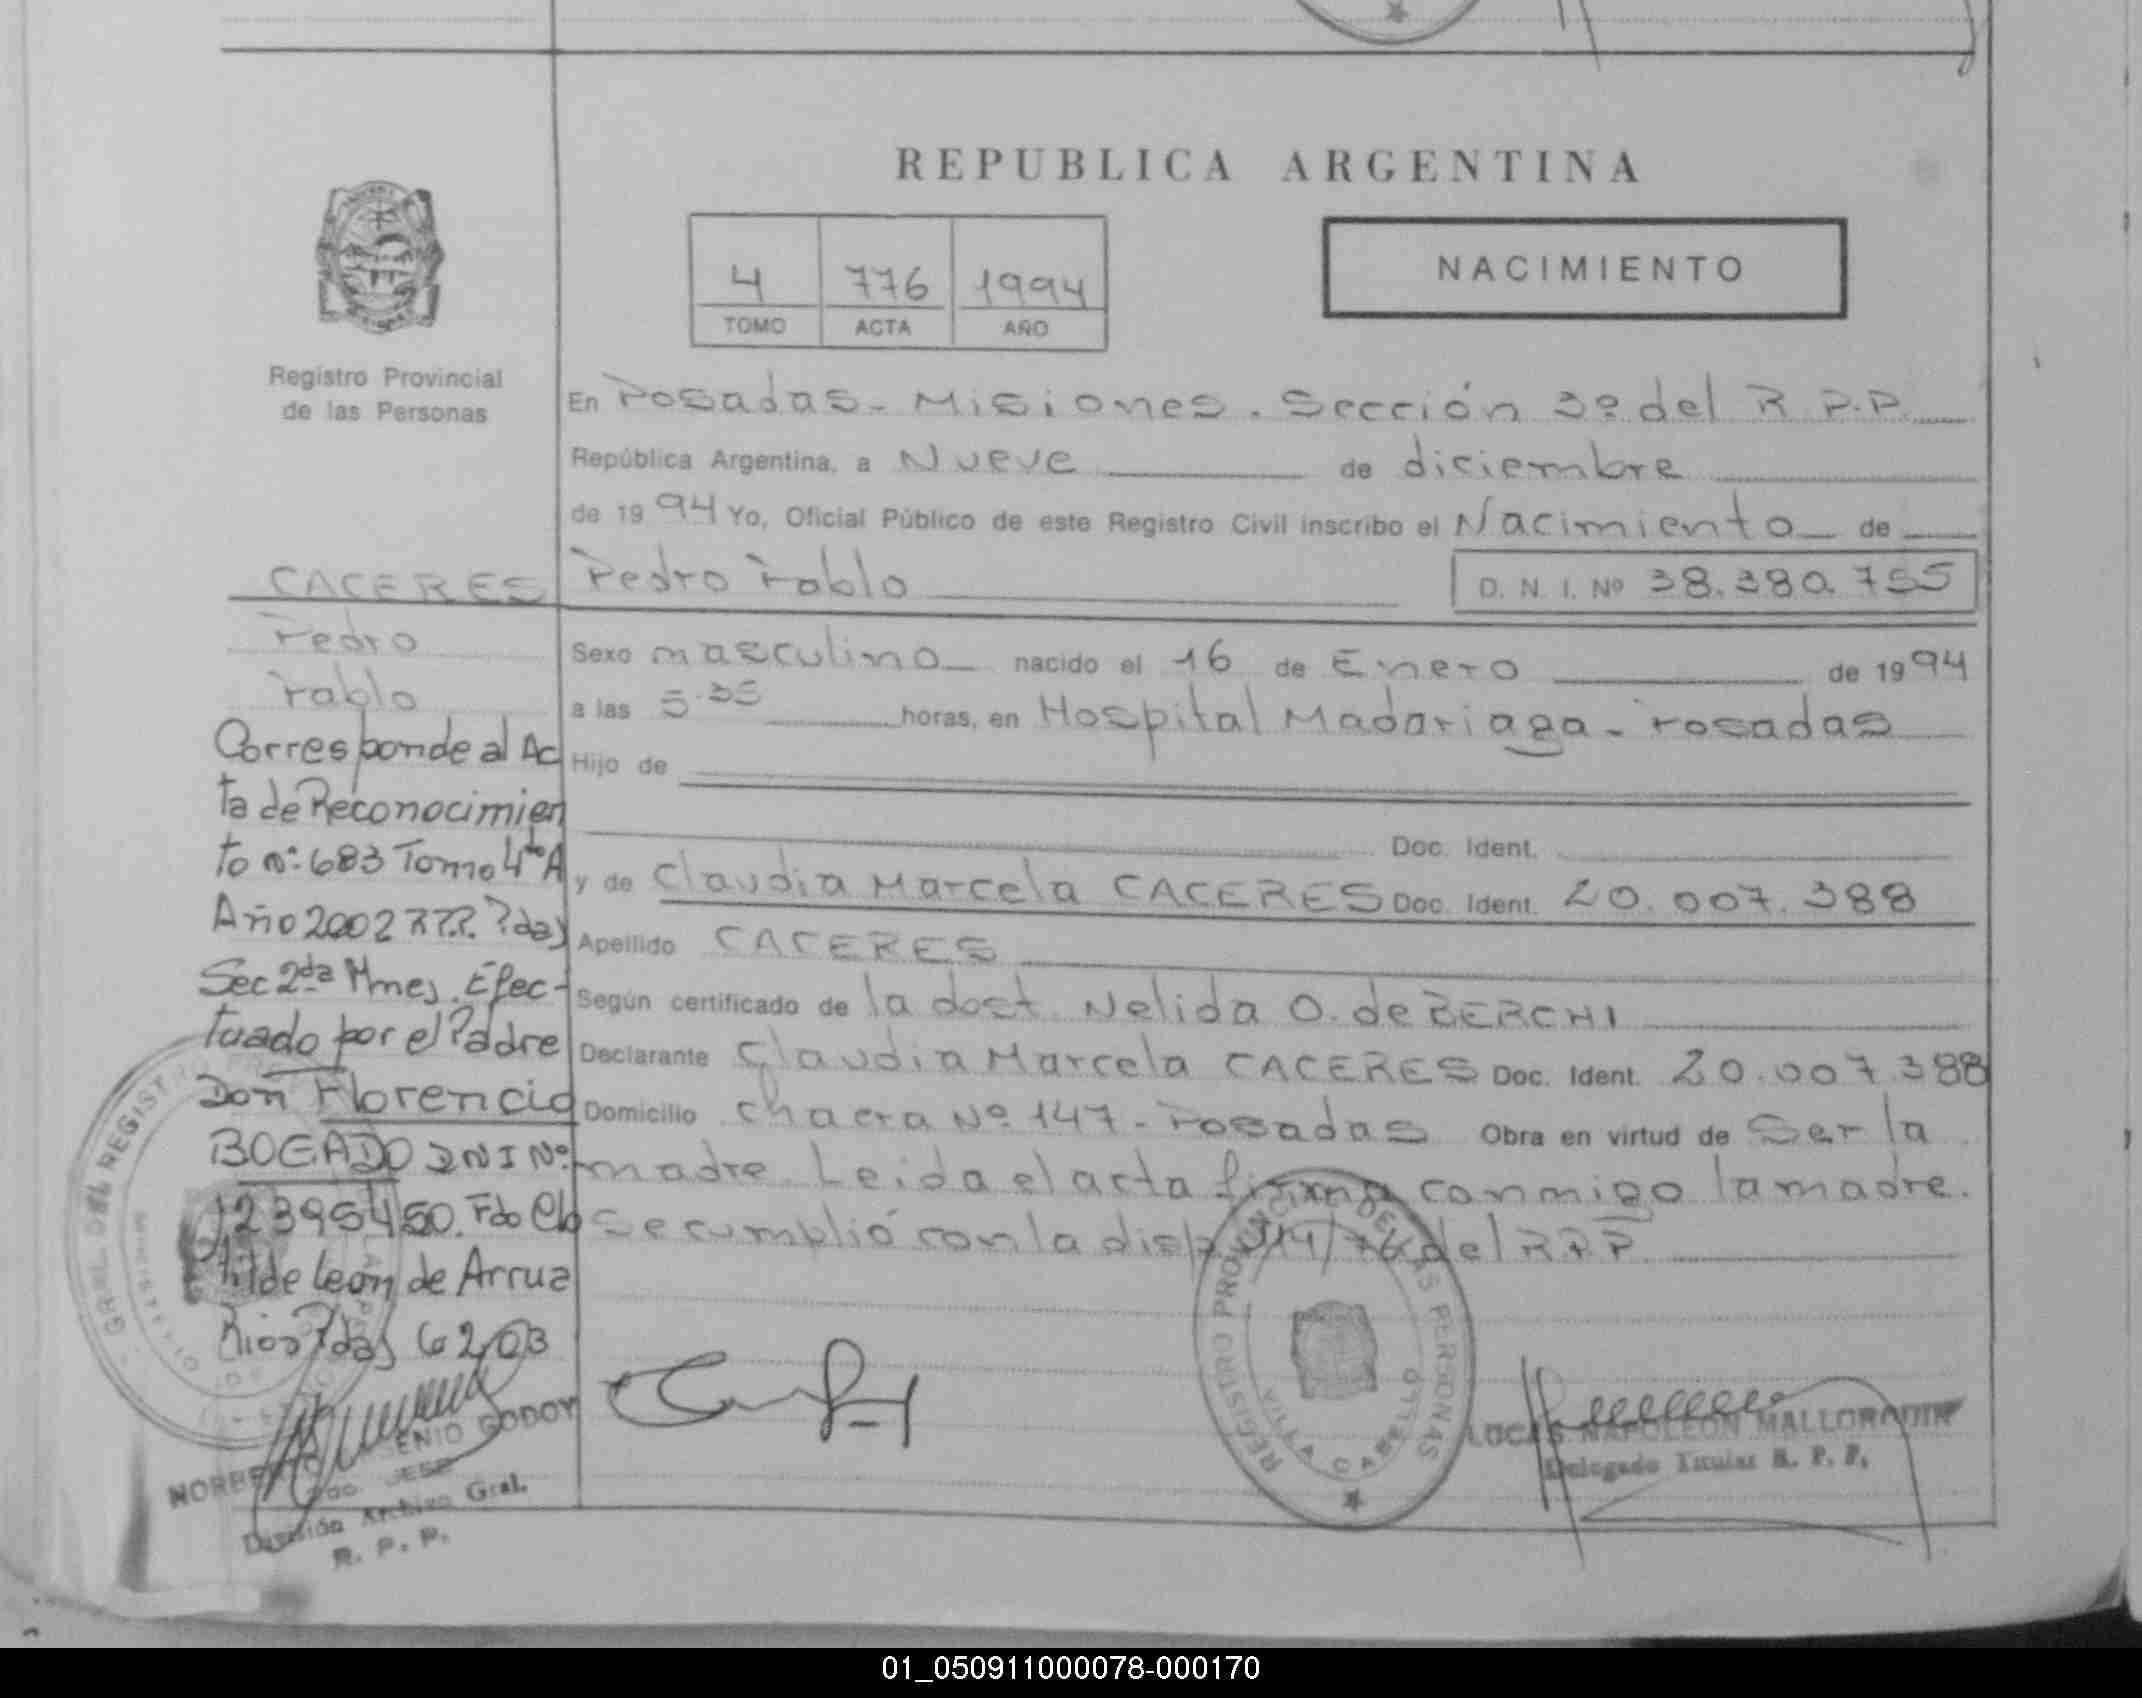 REPUBLICA ARGENTINA
4 776 1994
TOMO ACTA AÑO
NACIMIENTO
Registro Provincial
de las Personas
En Posadas - Misiones. Sección 3º del R.P.P.
República Argentina, a Nueve de diciembre
de 1994 Yo, Oficial Público de este Registro Civil inscribo el Nacimiento de
Pedro Pablo
D. N. I. Nº 38.380.755
Sexo masculino nacido el 16 de Enero de 1994
a las 5.35 horas, en Hospital Madariaga - Posadas
Hijo de
Doc. Ident.
y de Claudia Marcela CACERES Doc. Ident. 20.007.388
Apellido CACERES
Según certificado de la dost. Nelida O. de BERCHI
Declarante Claudia Marcela CACERES Doc. Ident. 20.007.388
Domicilio chacra Nº 147 - Posadas Obra en virtud de Ser la
madre. Leida el acta firma conmigo la madre.
Se cumplió con la disp. 314/76 del R.P.P.
CACERES
Pedro
Pablo
Corresponde al Ac
ta de Reconocimien
to nº: 683 Tomo 4to A
Año 2002 R.P.P. Pdas
Sec 2da Mnes. Efec-
tuado por el Padre
Don Florencio
BOGADO DNI Nº
12395450. Fdo Clo
tilde Leon de Arrua
Rios Pdas 6 2 03
GRAL. DEL REGIST
NORBE ENIO GODOY
JEFE
División Archivo Gral.
R. P. P.
REGISTRO PROVINCIAL DE LAS PERSONAS
VILLA CABELLO
LUCAS NAPOLEON
Delegado Titular R. P. P.
01_050911000078-000170